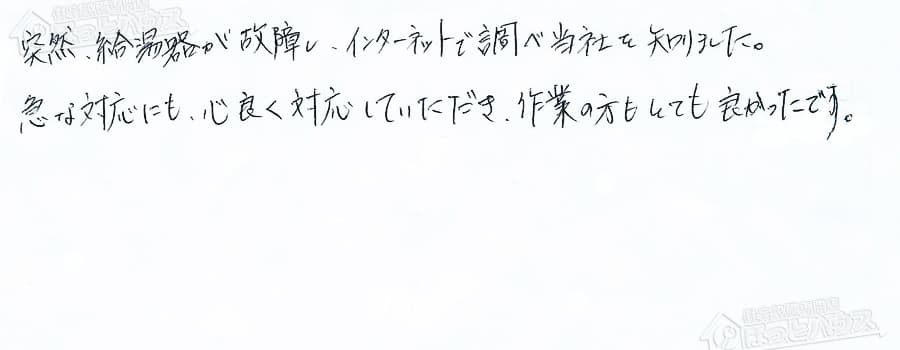 突然、給湯器が故障し、インターネットで調べ当社を知りました。
急な対応にも、心良く対応していただき、作業の方もとても良かったです。
ほっとハウス